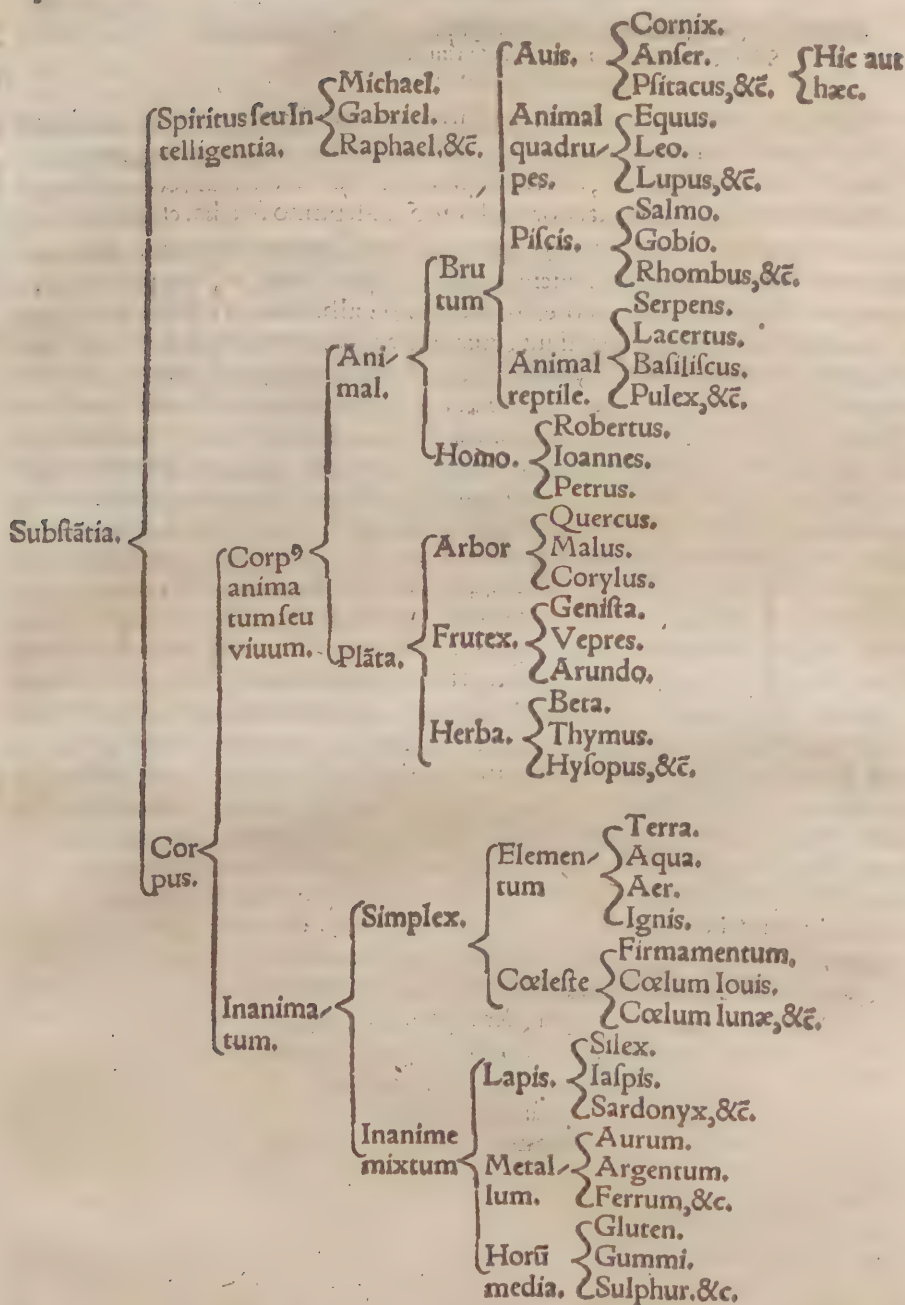 Substãtia.
Spiritus ſeu In
telligentia.
Michael.
Gabriel.
Raphael,&c̃.
Cor
pus.
Corpꝰ
anima
tum ſeu
viuum.
Ani⸗
mal.
Bru
tum
Auis.
Cornix.
Anſer.
Pſitacus,&c̃.
Hic aut
hæc.
Animal
quadru⸗
pes.
Equus.
Leo.
Lupus,&c̃.
Piſcis.
Salmo.
Gobio.
Rhombus,&c̃.
Animal
reptile.
Serpens.
Lacertus.
Baſiliſcus.
Pulex,&c̃.
Homo.
Robertus.
Ioannes.
Petrus.
Plãta.
Arbor
Quercus.
Malus.
Corylus.
Frutex.
Geniſta.
Vepres.
Arundo.
Herba.
Beta.
Thymus.
Hyſopus,&c̃.
Inanima⸗
tum.
Simplex.
Elemen⸗
tum
Terra.
Aqua.
Aer.
Ignis.
Cœleſte
Firmamentum.
Cœlum Iouis.
Cœlum lunæ,&c̃.
Inanime
mixtum
Lapis.
Silex.
Iaſpis.
Sardonyx,&c̃.
Metal⸗
lum.
Aurum.
Argentum.
Ferrum,&c.
Horũ
media.
Gluten.
Gummi.
Sulphur.&c.